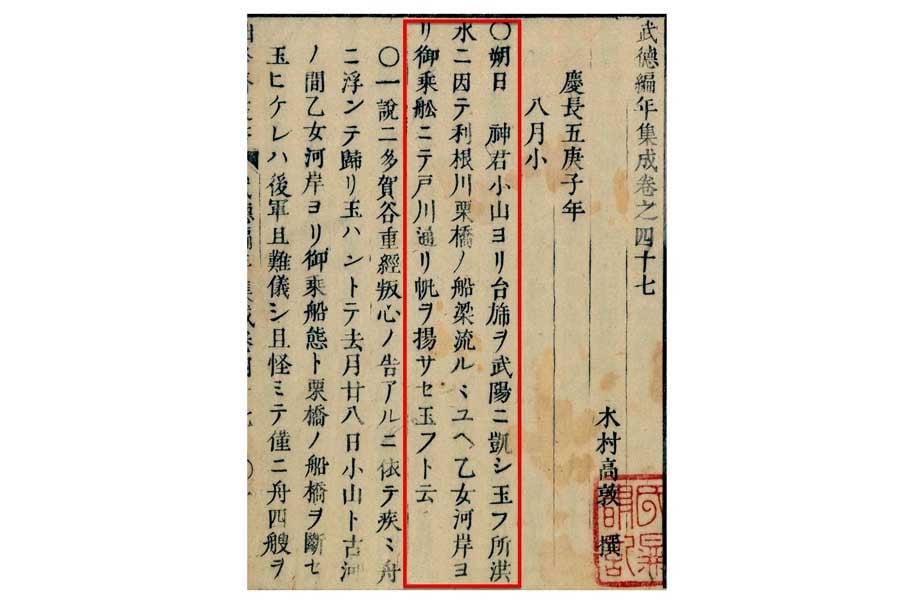 武德編年集成卷之四十七
木村高敦 撰
慶長五庚子年
八月小
〇朔日 神君小山ヨリ台旆ヲ武陽ニ凱シ玉フ所洪
水ニ因テ利根川栗橋ノ船梁流ルヽユヘ乙女河岸ヨ
リ御乘舩ニテ戸川通リ帆ヲ揚サセ玉フト云
〇一說ニ多賀谷重經叛心ノ告アルニ依テ疾ミ舟
ニ浮ンテ歸リ玉ハントテ去月廿八日小山ト古河
ノ間乙女河岸ヨリ御乘船態ト栗橋ノ船橋ヲ斷セ
玉ヒケレハ後軍且難儀シ且怪ミテ僅ニ舟四艘ヲ